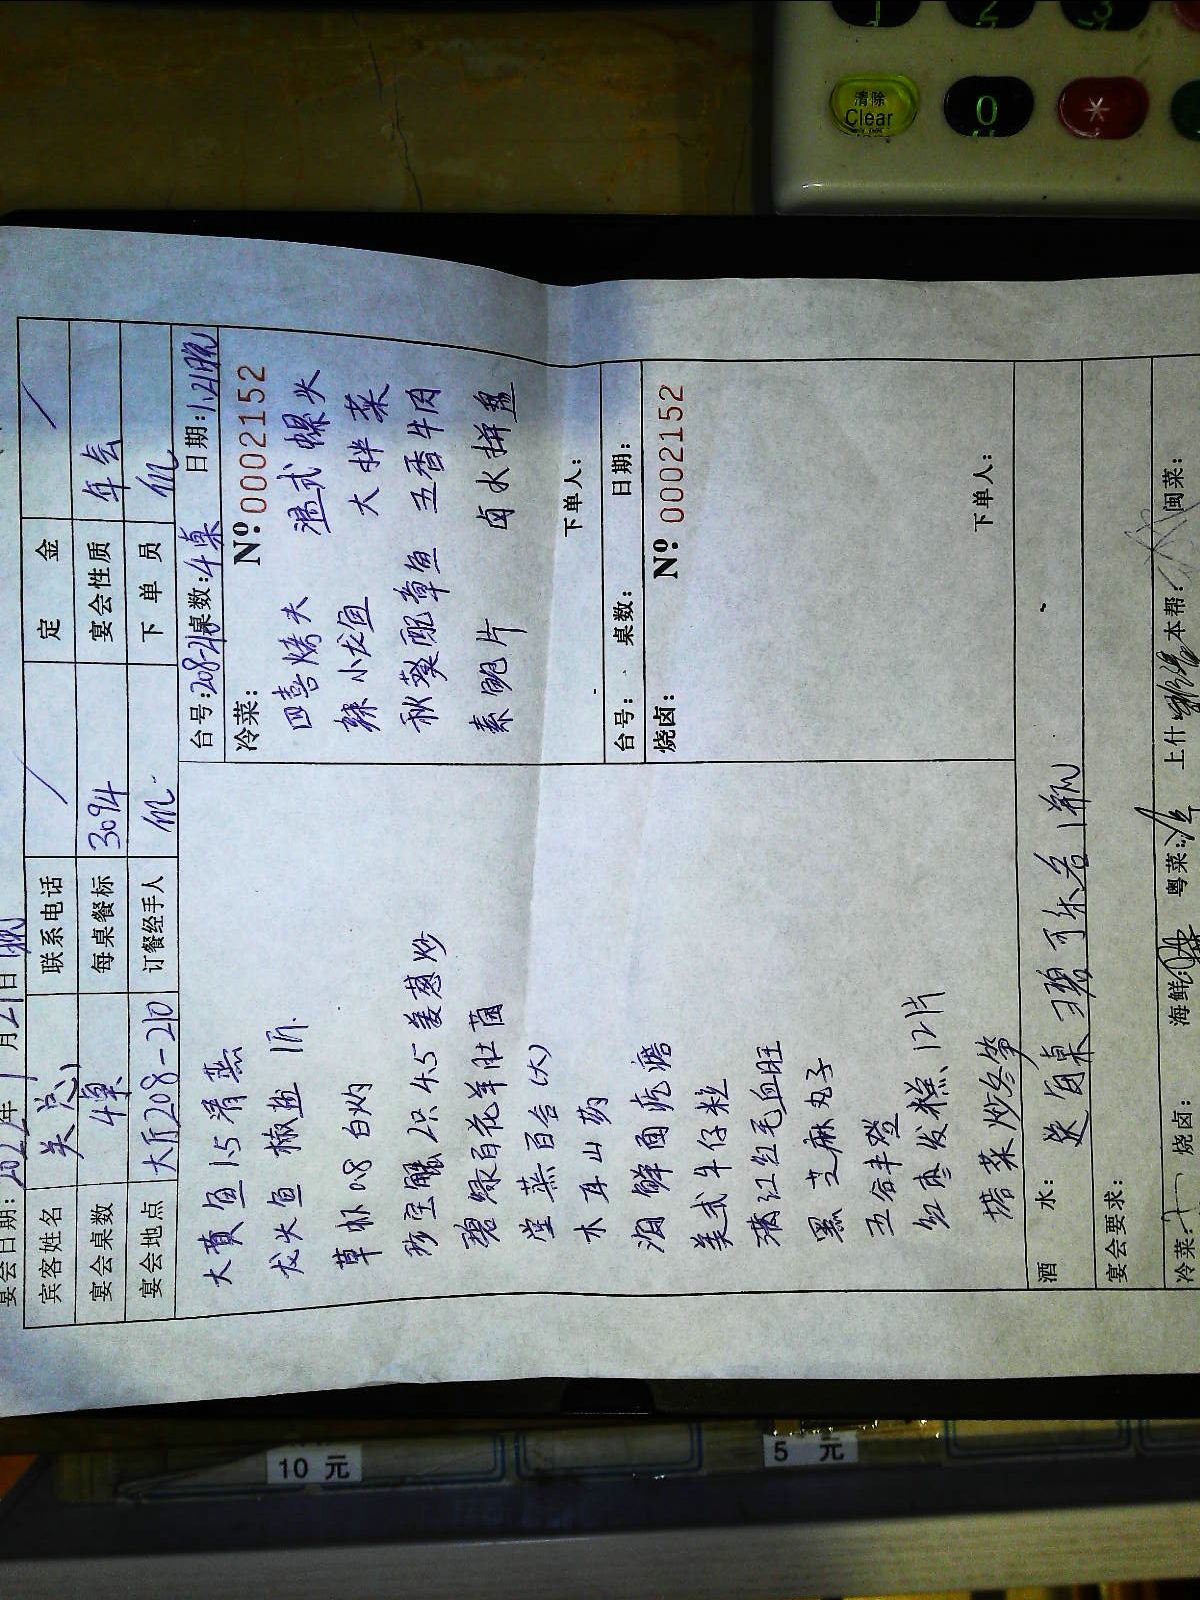 清除
Clear
0
*
宴会日期: 2022年1月21日 晚
宾客姓名 关总 联系电话 / 定 金 /
宴会桌数 4桌 每桌餐标 3094 宴会性质 年会
宴会地点 大厅208-210 订餐经手人 下 单 员
大黄鱼 1.5 清蒸
龙头鱼 椒盐 1斤.
草虾 0.8 白灼
珍宝蟹 2只 4.5 姜葱炒
碧绿百花羊肚菌
堂蒸百合(大)
木耳山药
海鲜面疙瘩
美式牛仔粒
满江红毛血旺
黑芝麻丸子
五谷丰登
红枣发糕 12片
塔菜炒冬笋
台号: 208-210 桌数: 4桌 日期: 1.21晚
冷菜: № 0002152
四喜烤夫 温式螺头
辣小龙鱼 大拌菜
秋葵配章鱼 五香牛肉
素鲍片 卤水拼盘
下单人:
台号: 桌数: 日期:
烧卤: № 0002152
下单人:
酒 水: 送每桌 可乐各1瓶
宴会要求:
冷菜: 烧卤: 海鲜: 粤菜: 上什: 本帮: 闽菜:
10 元
5 元